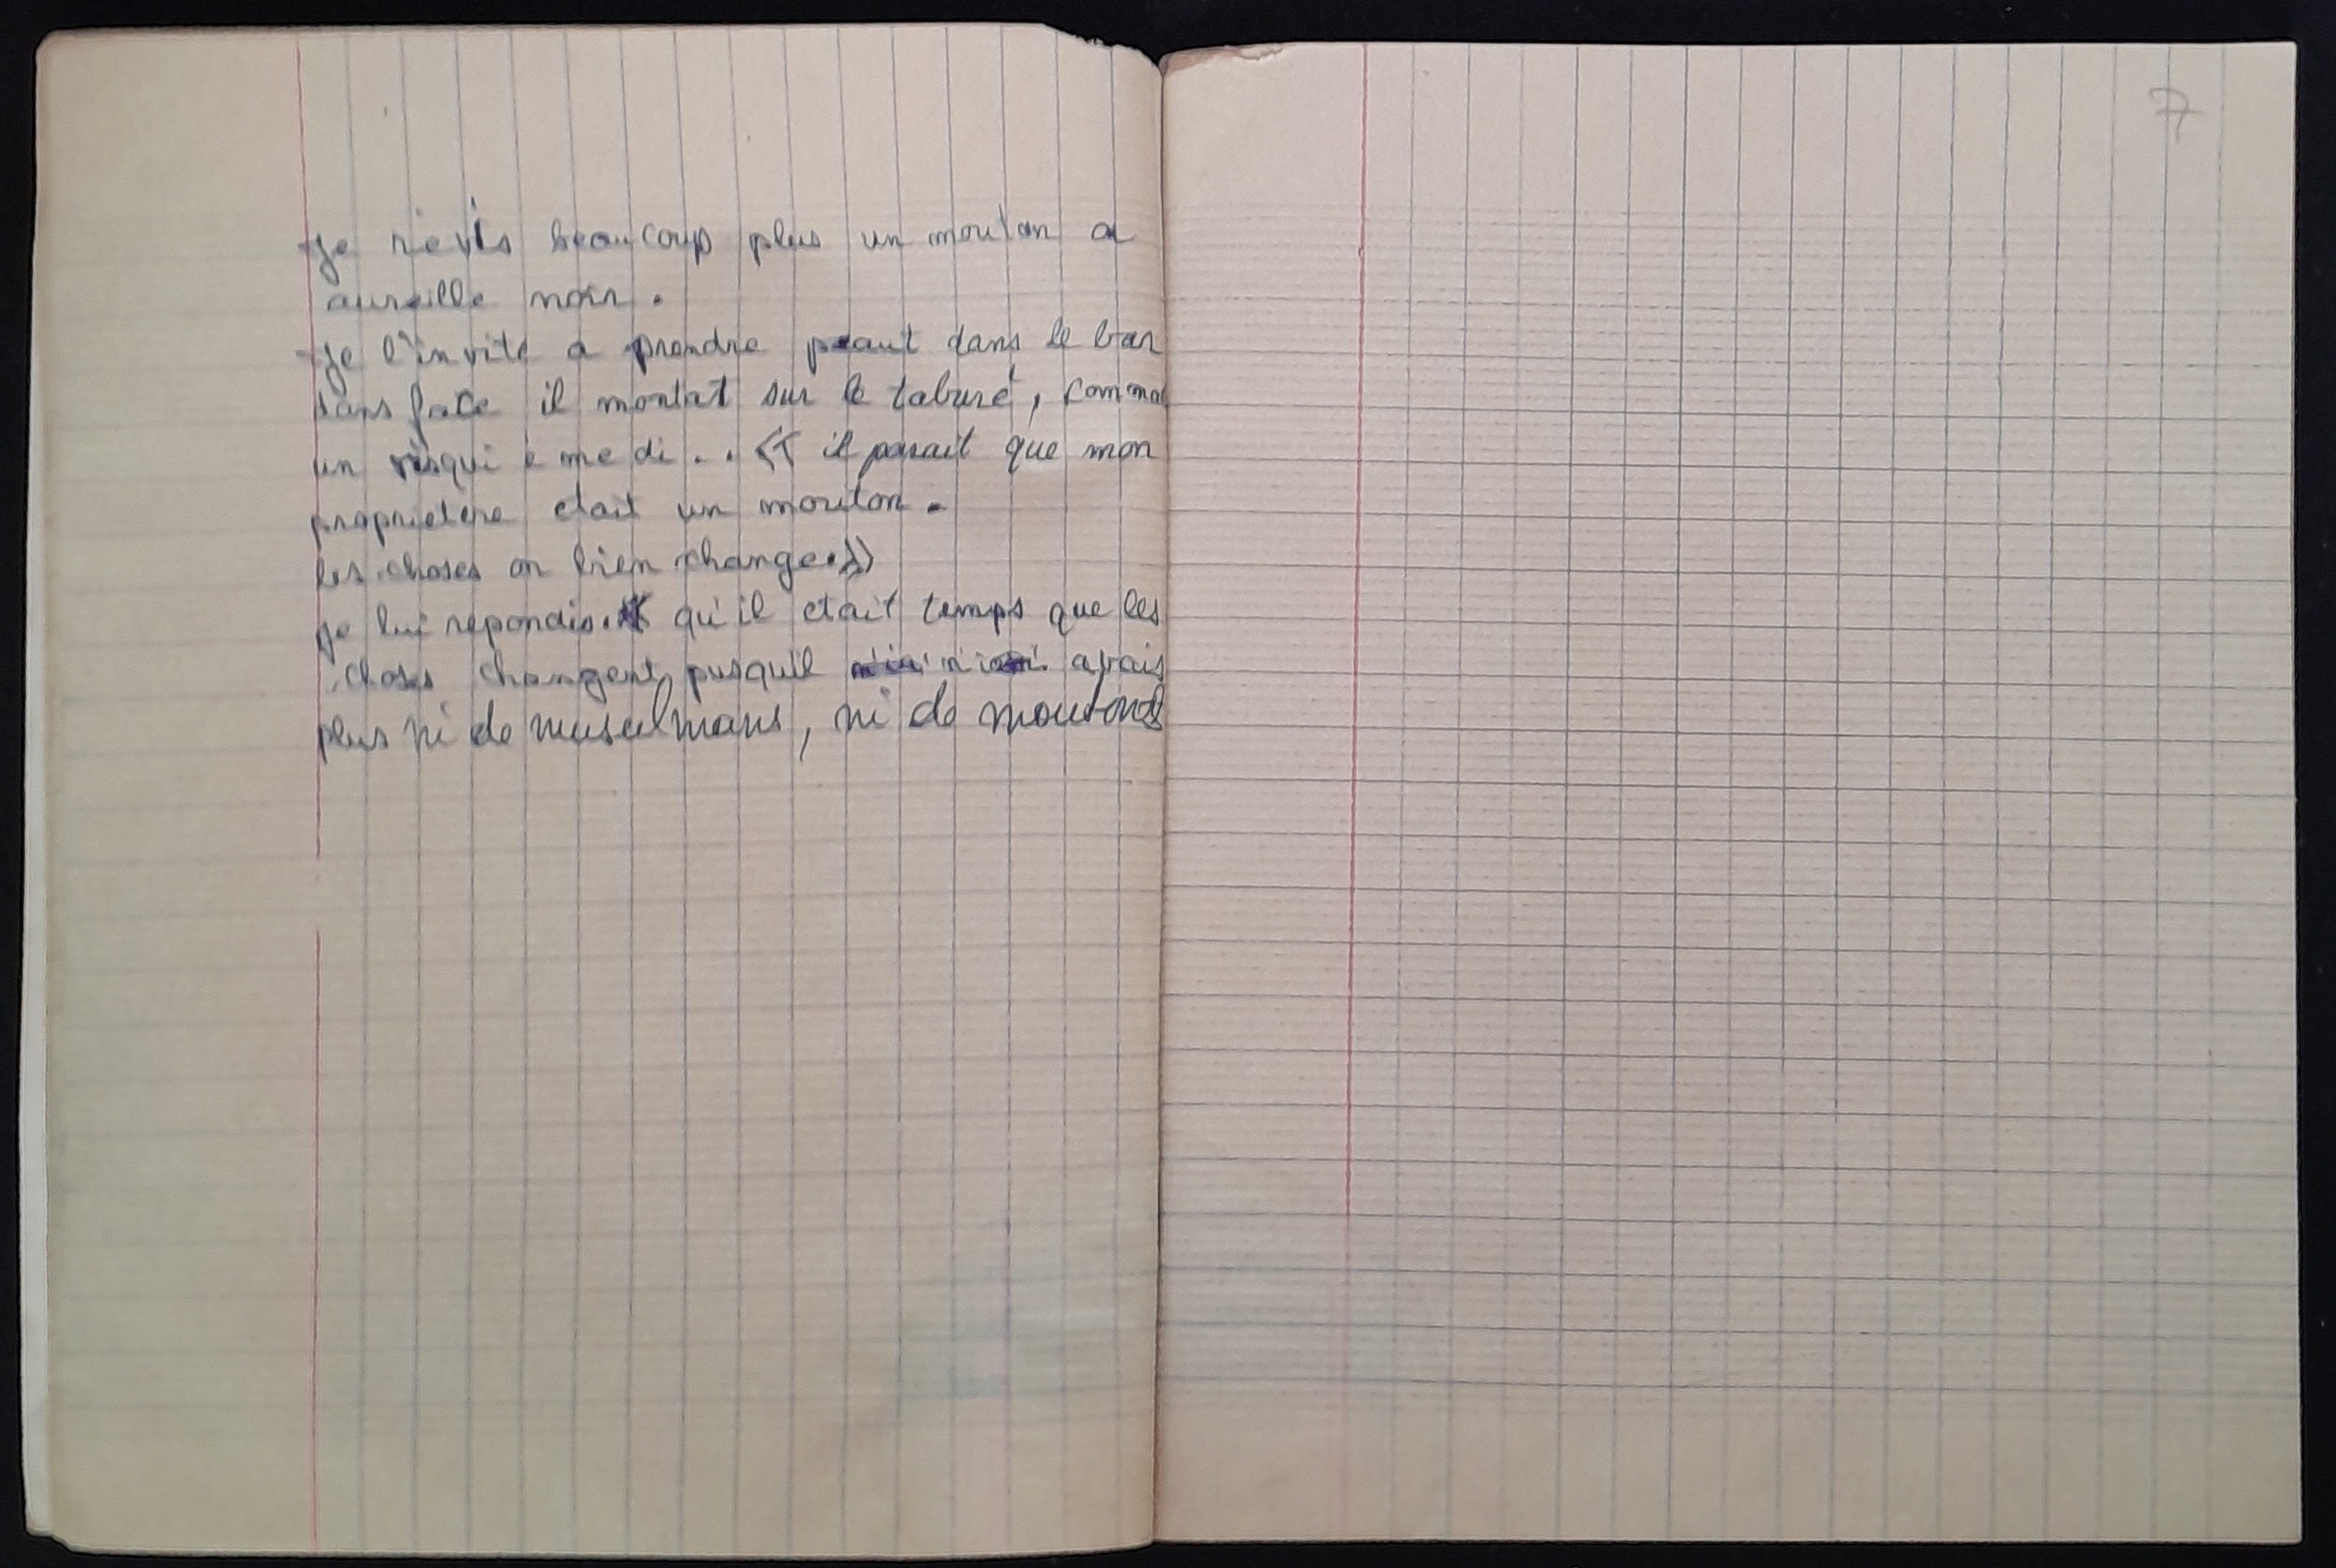 je revis beaucoup plus un mouton a
aureille noir.
je l'invite a prendre peaut dans le bar
dans face il montat sur le taburé, comma
un visqui é me di.. << il parait que mon
proprietere etait un mouton.
les choses on bien change.>>
je lui repondis.<< qu'il etait temps que les
choses changent pusquil avais
plus ni de musulmans, ni de moutons
7